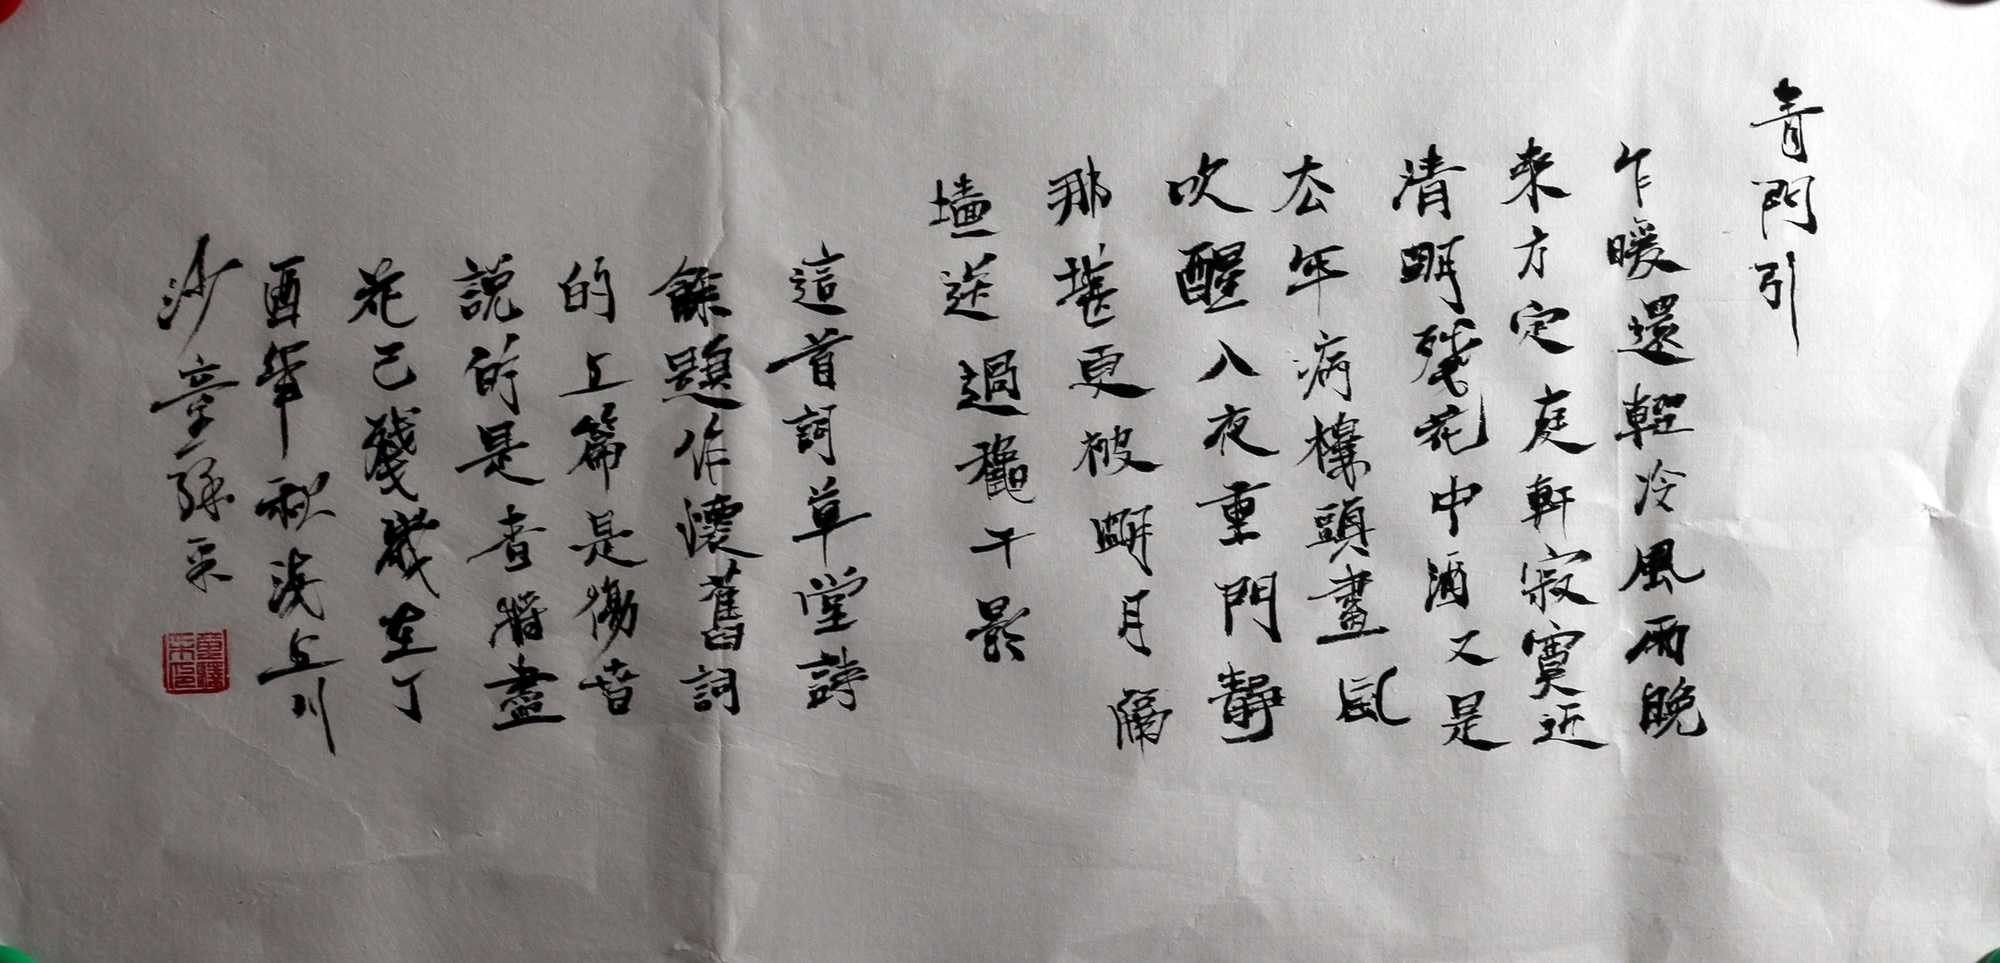 青門引
乍暖還輕冷風雨晚
來方定庭軒寂寞近
清明殘花中酒又是
去年病樓頭畫風
吹醒入夜重門靜
那堪更被明月隔
墻送過鞦韆影
這首詞草堂詩
餘題作懷舊詞
的上篇是傷春
說的是春將盡
花已殘歲在丁
酉年秋淺上川
沙章